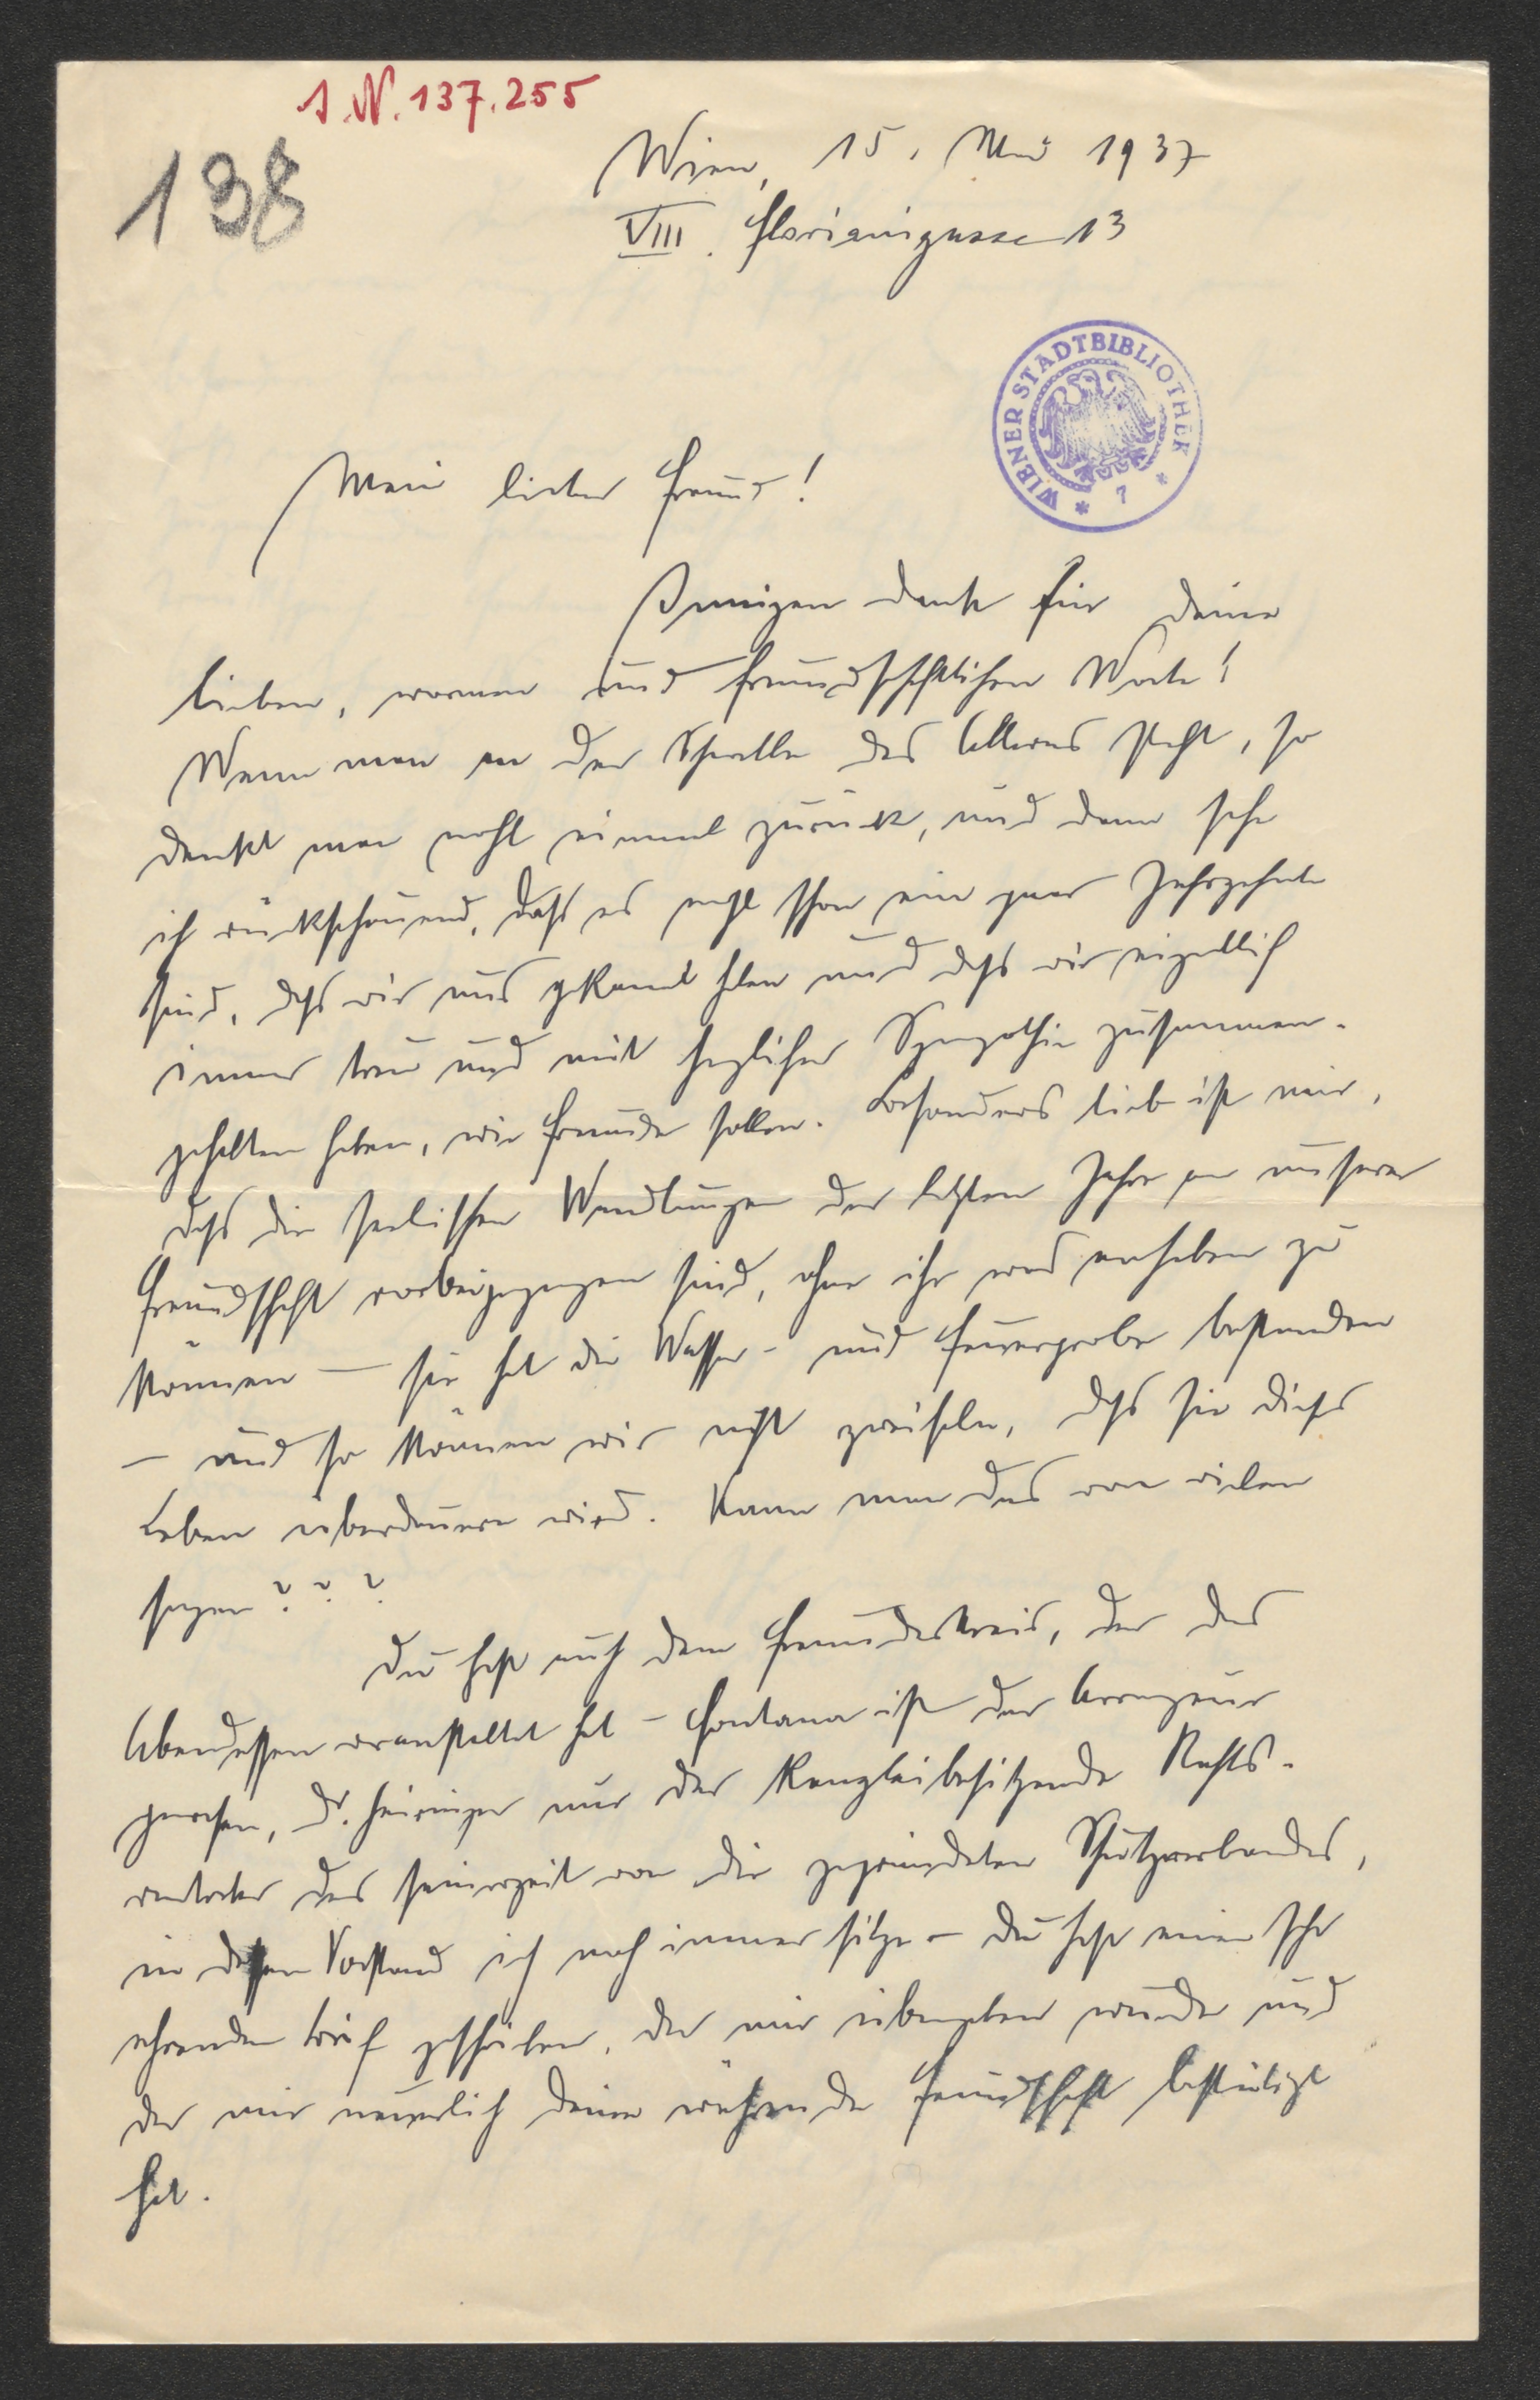 I.N. 137.255
138
Wien, 15. Mai 1937
VIII. Florianigasse 13
WIENER STADTBIBLIOTHEK
Mein lieber Freund!
Innigen Dank für Deine
lieben, warmen und freundschaftlichen Worte!
Wenn man an der Schwelle des Alterns steht, so
denkt man wohl einmal zurück, und dann sehe
ich rückschauend, dass es wohl schon ein paar Jahrzehnte
sind, dass wir uns gekannt haben und dass wir eigentlich
immer treu und mit herzlicher Sympathie zusammen-
gehalten haben, wie Freunde sollen. Besonders lieb ist mir,
dass die seelischen Wandlungen der letzten Jahre an unserer
Freundschaft vorbeigegangen sind, ohne ihr was anhaben zu
können – sie hat die Wasser- und Feuerprobe bestanden
– und so können wir nicht zweifeln, dass sie dieses
Leben überdauern wird. Kann man das von vielen
sagen???
Du hast auch dem Freundeskreis, der das
Abendessen veranstaltet hat – Fontana ist der Arrangeur
gewesen, Dr. nur der kanzleibesitzende Rechts-
vertreter des seinerzeit von Dir gegründeten Schutzverbandes,
in dessen Vorstand ich noch immer sitze – Du hast einen sehr
ehrenden Brief geschrieben, der mir übergeben wurde und
der mir neuerlich Deine währende Freundschaft bestätigt
hat.